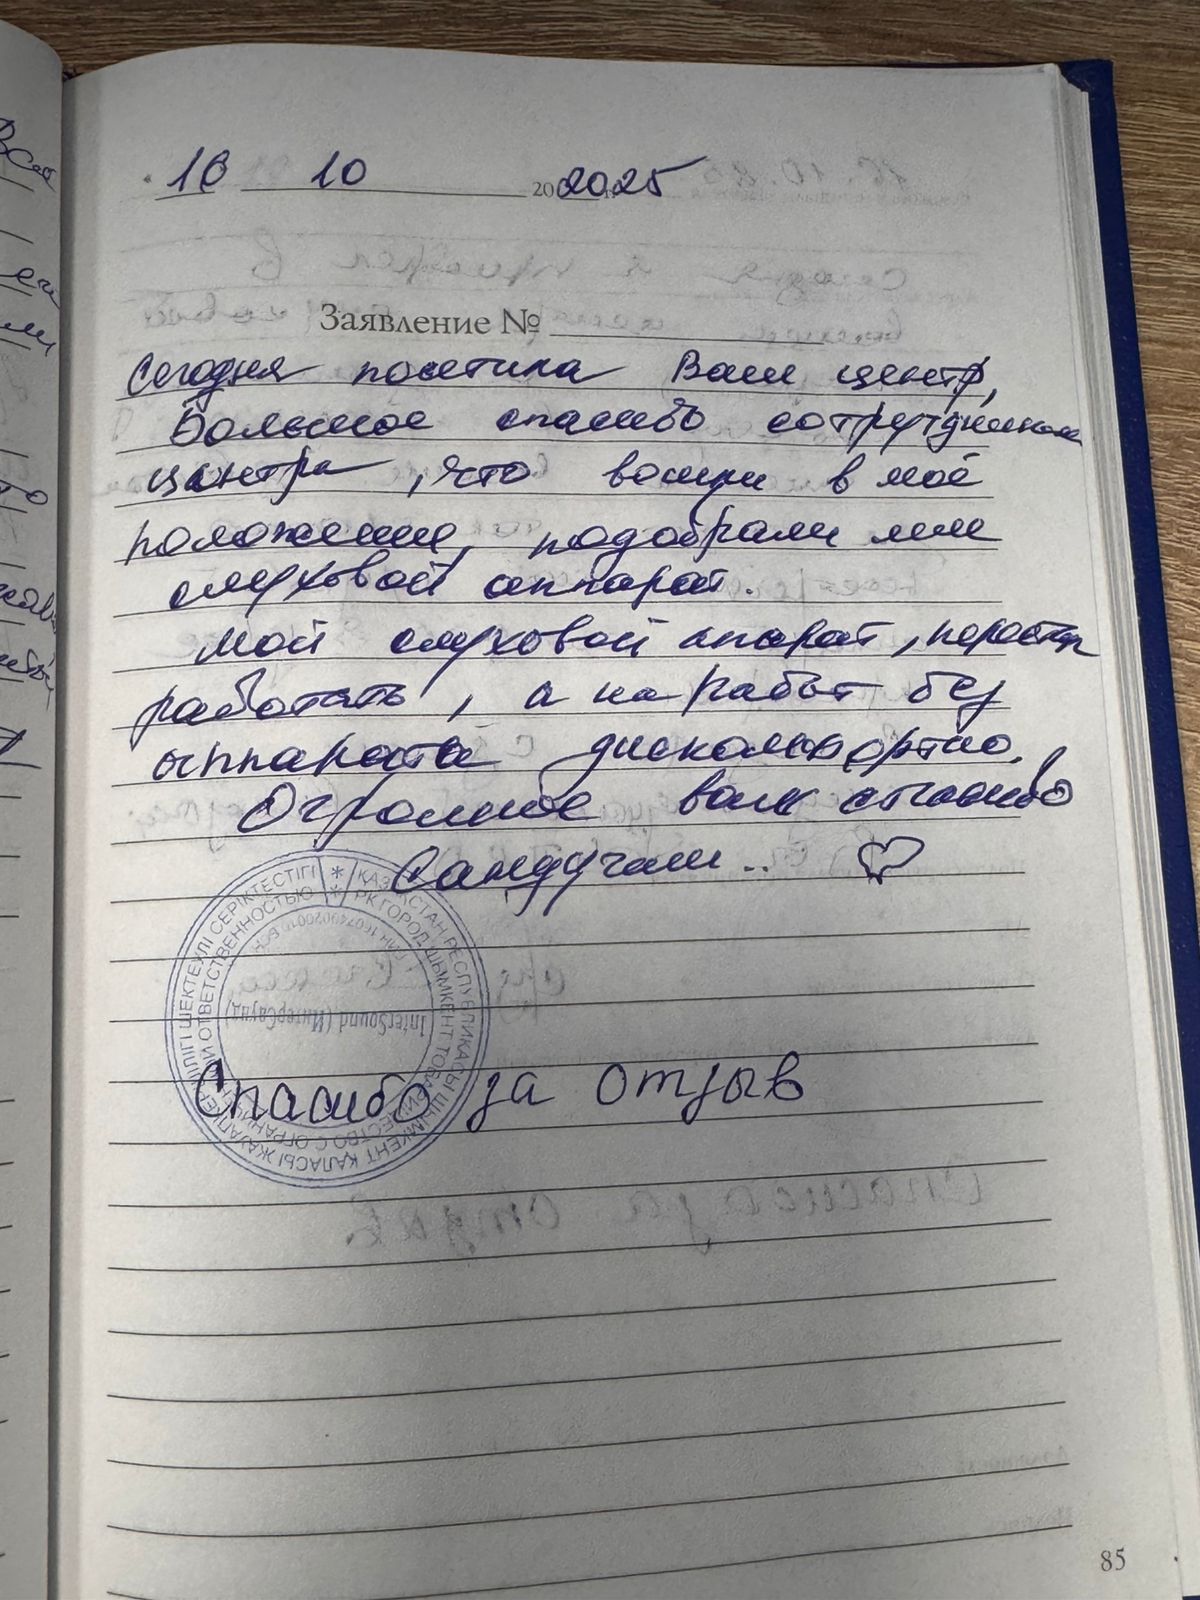 16 10 20 2025
Заявление №
Сегодня посетила Ваш центр,
Большое спасибо сотрудникам
центра, что вошли в моё
положение, подобрали мне
слуховой аппарат.
Мой слуховой апарат, перестал
работать, а на работ без
аппарата дискомфортно.
Огромное вам спасибо
..
ҚАЗАҚСТАН РЕСПУБЛИКАСЫ ШЫМКЕНТ ҚАЛАСЫ ЖАУАПКЕРШІЛІГІ ШЕКТЕУЛІ СЕРІКТЕСТІГІ
РК ГОРОД ШЫМКЕНТ ТОВАРИЩЕСТВО С ОГРАНИЧЕННОЙ ОТВЕТСТВЕННОСТЬЮ
InterSound (ИнтерСаунд)
Спасибо за отзыв
85